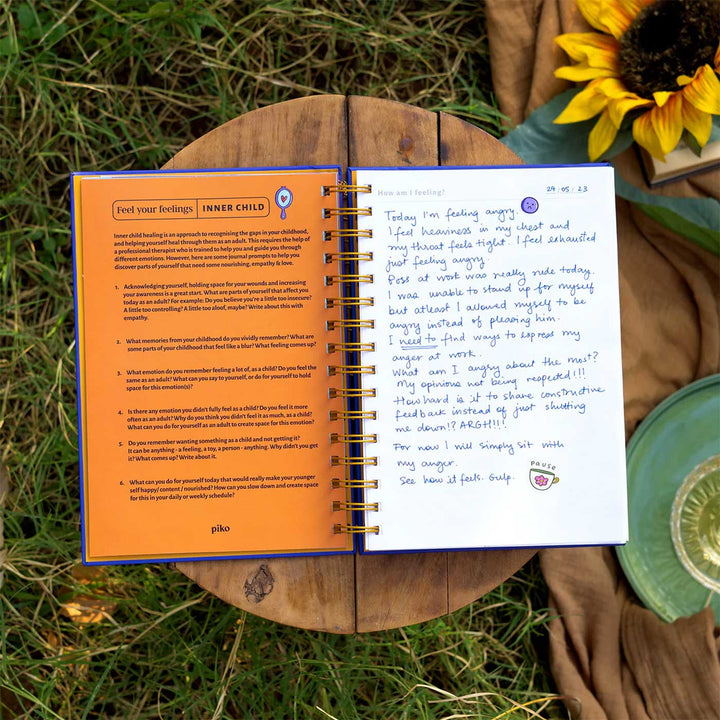 Feel your feelings | INNER CHILD
Inner child healing is an approach to recognising the gaps in your childhood,
and helping yourself heal through them as an adult. This requires the help of
a professional therapist who is trained to help you and guide you through
different emotions. However, here are some journal prompts to help you
discover parts of yourself that need some nourishing, empathy & love.
1. Acknowledging yourself, holding space for your wounds and increasing
your awareness is a great start. What are parts of yourself that affect you
today as an adult? For example: Do you believe you're a little too insecure?
A little too controlling? A little too aloof, maybe? Write about this with
empathy.
2. What memories from your childhood do you vividly remember? What are
some parts of your childhood that feel like a blur? What feeling comes up?
3. What emotion do you remember feeling a lot of, as a child? Do you feel the
same as an adult? What can you say to yourself, or do for yourself to hold
space for this emotion(s)?
4. Is there any emotion you didn't fully feel as a child? Do you feel it more
often as an adult? Why do you think you didn't feel it as much, as a child?
What can you do for yourself as an adult to create space for this emotion?
5. Do you remember wanting something as a child and not getting it?
It can be anything - a feeling, a toy, a person - anything. Why didn't you get
it? What comes up? Write about it.
6. What can you do for yourself today that would really make your younger
self happy/ content / nourished? How can you slow down and create space
for this in your daily or weekly schedule?
piko
How am I feeling?
24.05.23
Today I'm feeling angry.
I feel heaviness in my chest and
my throat feels tight. I feel exhausted
just feeling angry.
Boss at work was really rude today.
I was unable to stand up for myself
but atleast I allowed myself to be
angry instead of pleasing him.
I need to find ways to express my
anger at work.
What am I angry about the most?
My opinions not being respected!!!
How hard is it to share constructive
feedback instead of just shutting
me down!? ARGH!!!
For now I will simply sit with
my anger.
See how it feels. Gulp.
PAUSE